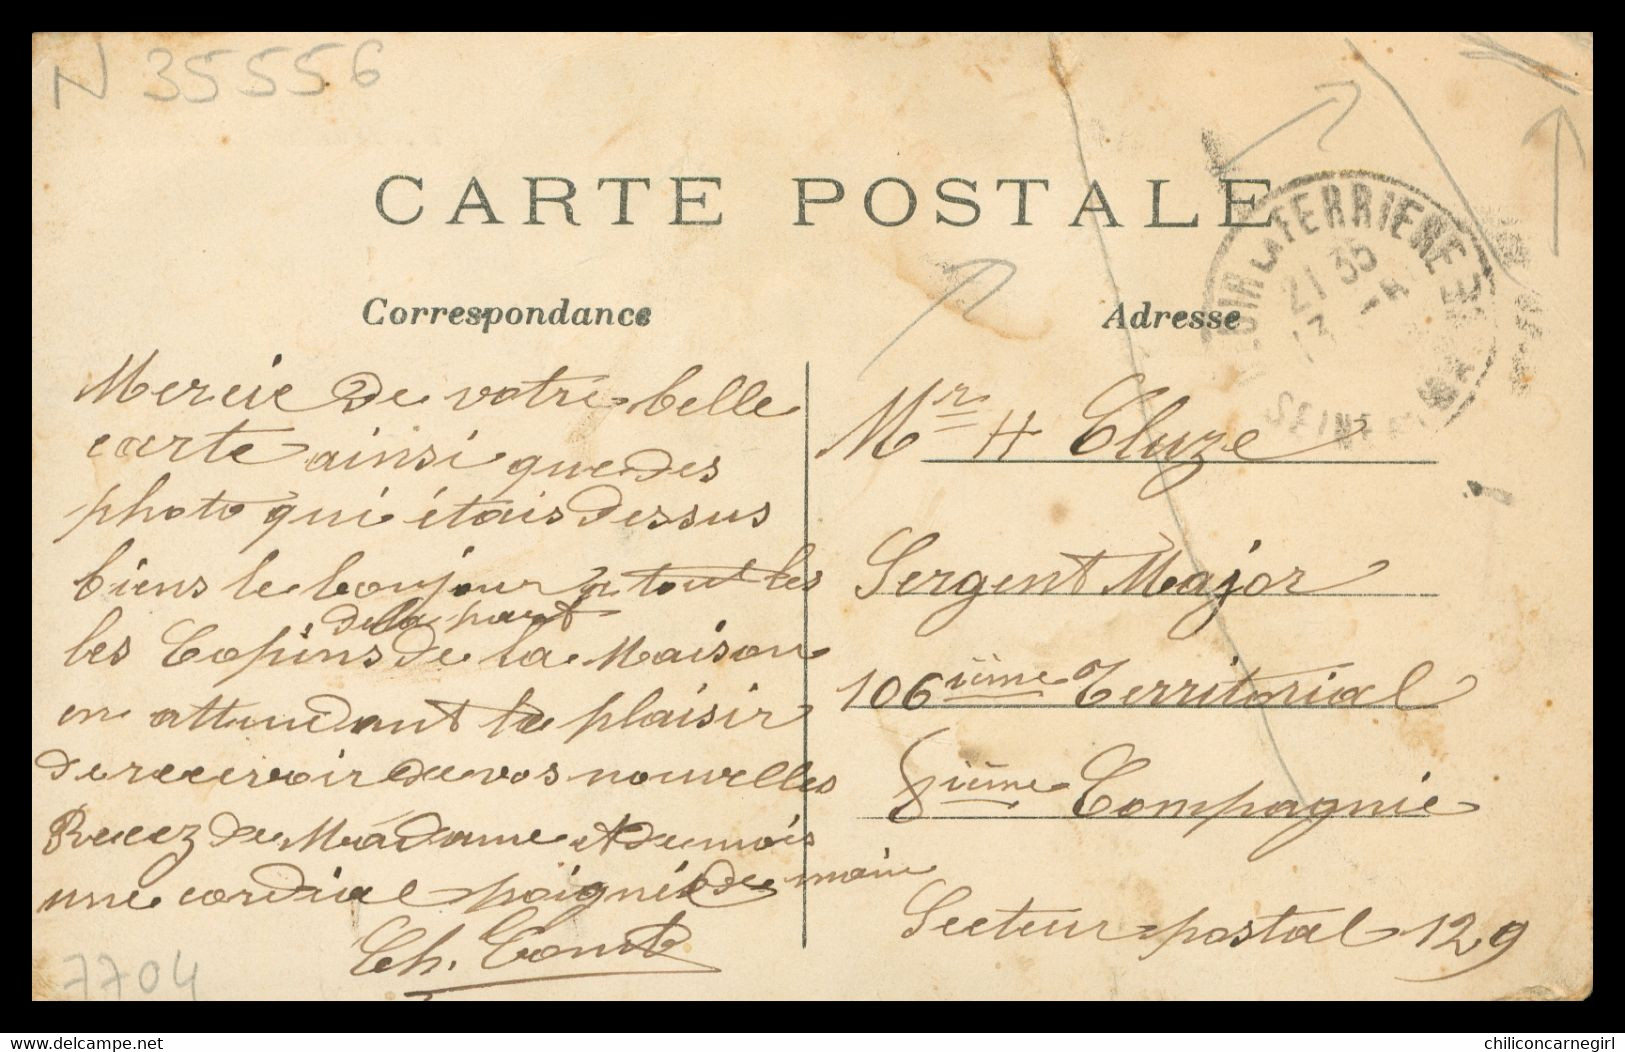 N 35556
CARTE POSTALE
Correspondance
Mercie de votre belle
carte ainsi que des
photo qui étais dessus
biens le bonjour a tout les
de la part
les Copins de la Maison
en attendant le plaisir
de recevoir de vos nouvelles
Recez de Madame et de mois
une cordial poignée de main
Ch.
7704
Adresse
LAFERRIERE
21 35
13
SEINE
Mr H Cluze
Sergent Major
106ième Territorial
8ième Compagnie
Secteur postal 129
www.delcampe.net
chiliconcarnegirl